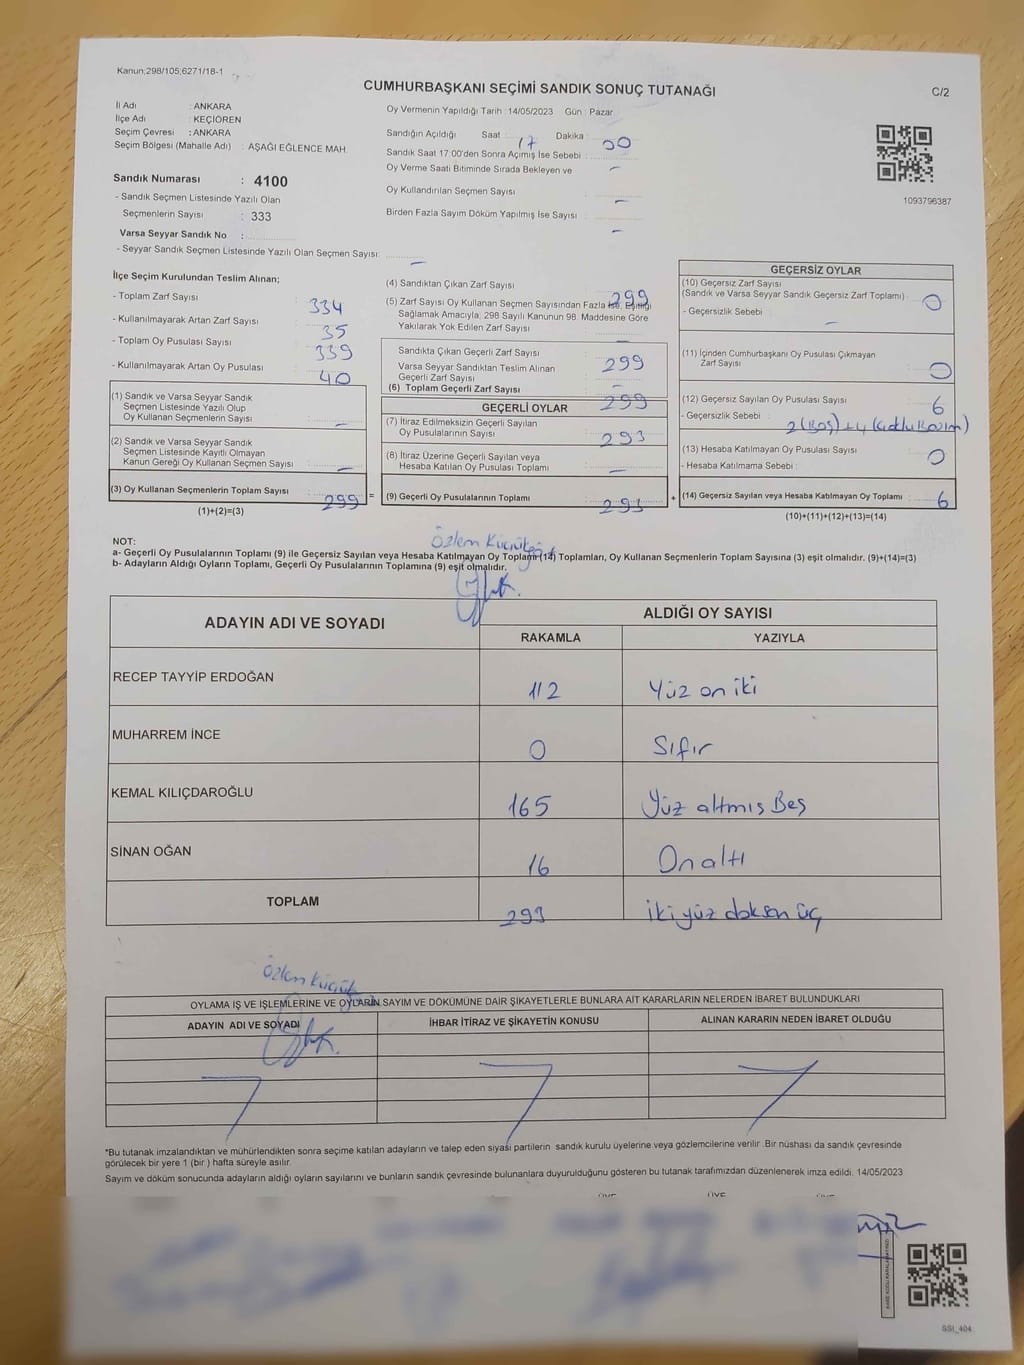 Kanun;298/105;6271/18-1
CUMHURBAŞKANI SEÇİMİ SANDIK SONUÇ TUTANAĞI
C/2
İl Adı : ANKARA
İlçe Adı : KEÇİÖREN
Seçim Çevresi : ANKARA
Seçim Bölgesi (Mahalle Adı) : AŞAĞI EĞLENCE MAH.
Oy Vermenin Yapıldığı Tarih : 14/05/2023 Gün : Pazar
Sandığın Açıldığı Saat : 17 Dakika : 00
Sandık Saat 17:00'den Sonra Açımış İse Sebebi : –
Oy Verme Saati Bitiminde Sırada Bekleyen ve
Oy Kullandırılan Seçmen Sayısı –
Birden Fazla Sayım Döküm Yapılmış İse Sayısı –
1093796387
Sandık Numarası : 4100
- Sandık Seçmen Listesinde Yazılı Olan
Seçmenlerin Sayısı : 333
Varsa Seyyar Sandık No :
- Seyyar Sandık Seçmen Listesinde Yazılı Olan Seçmen Sayısı: –
İlçe Seçim Kurulundan Teslim Alınan;
- Toplam Zarf Sayısı : 334
- Kullanılmayarak Artan Zarf Sayısı : 35
- Toplam Oy Pusulası Sayısı : 339
- Kullanılmayarak Artan Oy Pusulası : 40
(1) Sandık ve Varsa Seyyar Sandık
Seçmen Listesinde Yazılı Olup
Oy Kullanan Seçmenlerin Sayısı : –
(2) Sandık ve Varsa Seyyar Sandık
Seçmen Listesinde Kayıtlı Olmayan
Kanun Gereği Oy Kullanan Seçmen Sayısı : –
(3) Oy Kullanan Seçmenlerin Toplam Sayısı : 299 =
(1)+(2)=(3)
(4) Sandıktan Çıkan Zarf Sayısı : 299
(5) Zarf Sayısı Oy Kullanan Seçmen Sayısından Fazla İse, Eşitliği
Sağlamak Amacıyla, 298 Sayılı Kanunun 98. Maddesine Göre
Yakılarak Yok Edilen Zarf Sayısı : –
Sandıkta Çıkan Geçerli Zarf Sayısı : 299
Varsa Seyyar Sandıktan Teslim Alınan
Geçerli Zarf Sayısı : –
(6) Toplam Geçerli Zarf Sayısı : 299
GEÇERLİ OYLAR
(7) İtiraz Edilmeksizin Geçerli Sayılan
Oy Pusulalarının Sayısı : 293
(8) İtiraz Üzerine Geçerli Sayılan veya
Hesaba Katılan Oy Pusulası Toplamı : –
(9) Geçerli Oy Pusulalarının Toplamı : 293 +
GEÇERSİZ OYLAR
(10) Geçersiz Zarf Sayısı
(Sandık ve Varsa Seyyar Sandık Geçersiz Zarf Toplamı) : 0
- Geçersizlik Sebebi : –
(11) İçinden Cumhurbaşkanı Oy Pusulası Çıkmayan
Zarf Sayısı : 0
(12) Geçersiz Sayılan Oy Pusulası Sayısı : 6
- Geçersizlik Sebebi : 2 (Boş) + 4
(13) Hesaba Katılmayan Oy Pusulası Sayısı : 0
- Hesaba Katılmama Sebebi :
(14) Geçersiz Sayılan veya Hesaba Katılmayan Oy Toplamı : 6
(10)+(11)+(12)+(13)=(14)
NOT:
Özlem Küçük
a- Geçerli Oy Pusulalarının Toplamı (9) ile Geçersiz Sayılan veya Hesaba Katılmayan Oy Toplamı (14) Toplamları, Oy Kullanan Seçmenlerin Toplam Sayısına (3) eşit olmalıdır. (9)+(14)=(3)
b- Adayların Aldığı Oyların Toplamı, Geçerli Oy Pusulalarının Toplamına (9) eşit olmalıdır.
ADAYIN ADI VE SOYADI
ALDIĞI OY SAYISI
RAKAMLA YAZIYLA
RECEP TAYYİP ERDOĞAN 112 Yüz on iki
MUHARREM İNCE 0 Sıfır
KEMAL KILIÇDAROĞLU 165 Yüz altmış Beş
SİNAN OĞAN 16 On altı
TOPLAM 293 iki yüz doksan üç
Özlem Küçük
OYLAMA İŞ VE İŞLEMLERİNE VE OYLARIN SAYIM VE DÖKÜMÜNE DAİR ŞİKAYETLERLE BUNLARA AİT KARARLARIN NELERDEN İBARET BULUNDUKLARI
ADAYIN ADI VE SOYADI İHBAR İTİRAZ VE ŞİKAYETİN KONUSU ALINAN KARARIN NEDEN İBARET OLDUĞU
*Bu tutanak imzalandıktan ve mühürlendikten sonra seçime katılan adayların ve talep eden siyasi partilerin sandık kurulu üyelerine veya gözlemcilerine verilir .Bir nüshası da sandık çevresinde
görülecek bir yere 1 (bir ) hafta süreyle asılır.
Sayım ve döküm sonucunda adayların aldığı oyların sayılarını ve bunların sandık çevresinde bulunanlara duyurulduğunu gösteren bu tutanak tarafımızdan düzenlenerek imza edildi. 14/05/2023
SSI_404